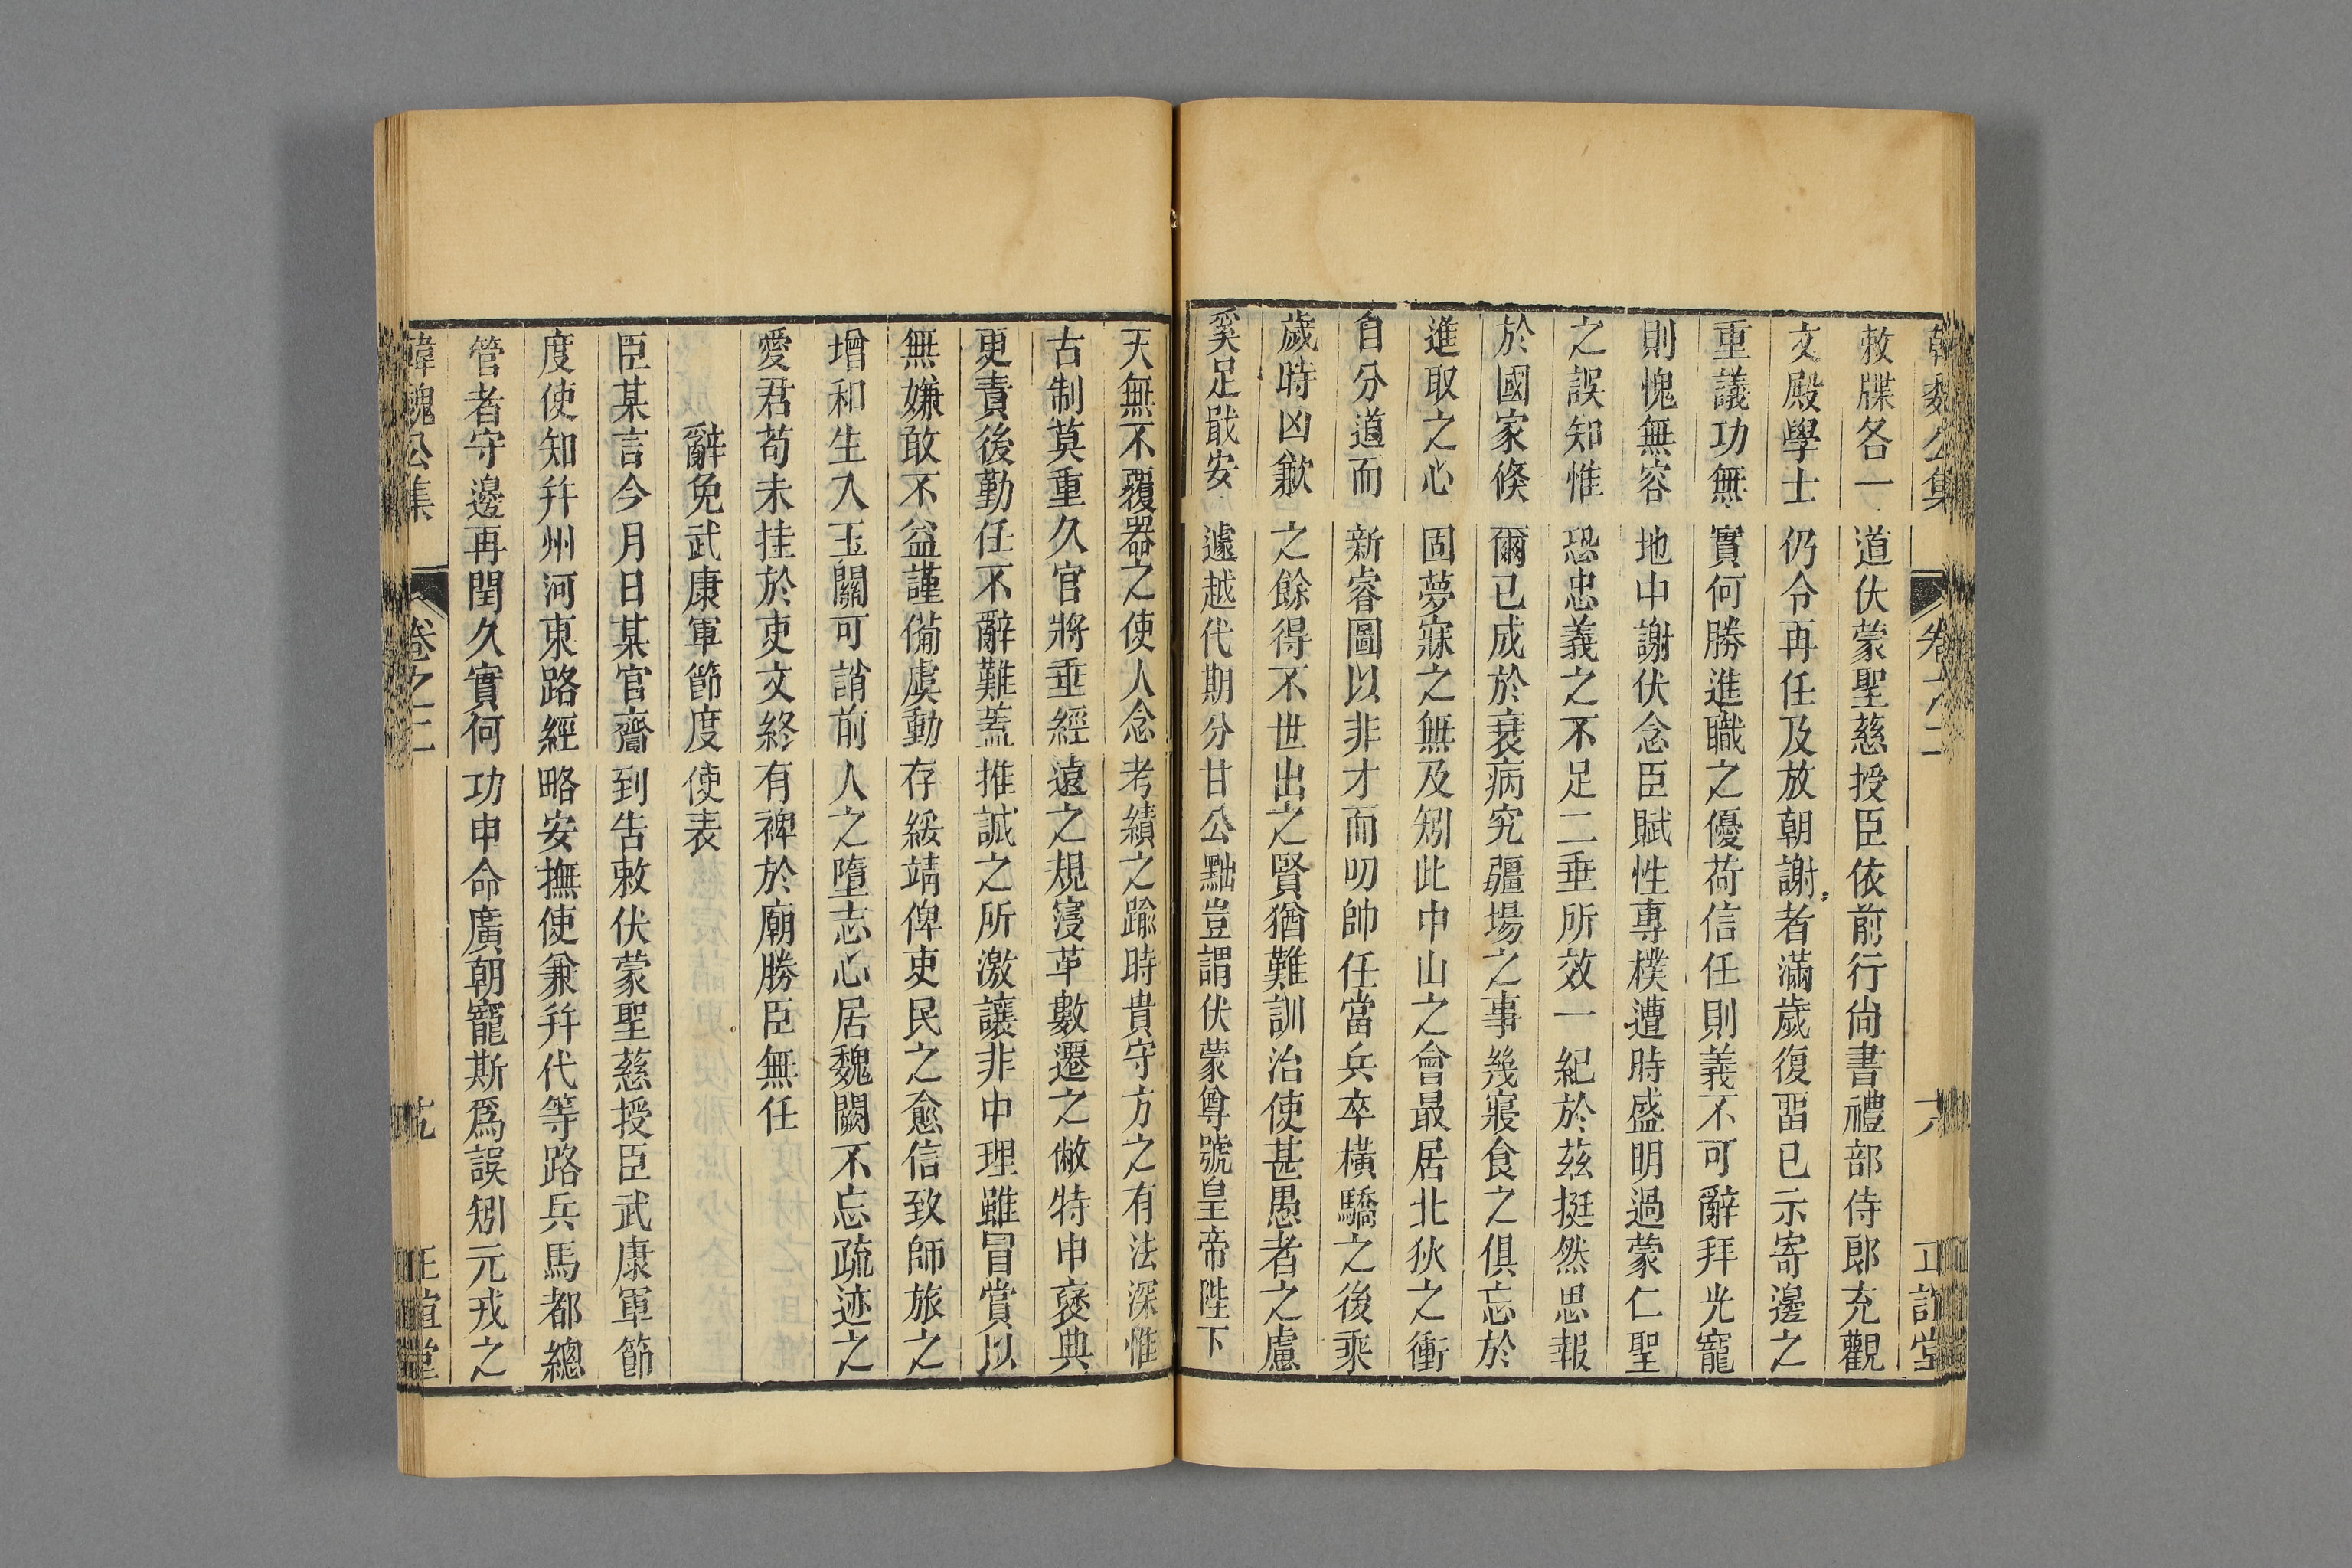 韓魏公集 卷之二 六 正誼堂
敕牒各一道伏蒙聖慈授臣依前行尙書禮部侍郎充觀
文殿學士仍令再任及放朝謝者滿歲復畱已示寄邊之
重議功無實何勝進職之優荷信任則義不可辭拜光寵
則愧無容地中謝伏念臣賦性專樸遭時盛明過蒙仁聖
之誤知惟恐忠義之不足二垂所效一紀於茲挺然思報
於國家倏爾已成於衰病究疆場之事幾寢食之俱忘於
進取之心固夢寐之無及矧此中山之會最居北狄之衝
自分道而新睿圖以非才而叨帥任當兵卒橫驕之後乘
歲時凶歉之餘得不世出之賢猶難訓治使甚愚者之慮
奚足戢安遽越代期分甘公黜豈謂伏蒙尊號皇帝陛下
天無不覆器之使人念考績之踰時貴守方之有法深惟
古制莫重久官將垂經遠之規寖革數遷之敝特申褒典
更責後勤任不辭難蓋推誠之所激讓非中理雖冒賞以
無嫌敢不益謹備虞動存綏靖俾吏民之愈信致師旅之
增和生入玉關可誚前人之墮志心居魏闕不忘疏迹之
愛君苟未挂於吏文終有裨於廟勝臣無任
辭免武康軍節度使表
臣某言今月日某官齎到告敕伏蒙聖慈授臣武康軍節
度使知幷州河東路經略安撫使兼幷代等路兵馬都總
管者守邊再閏久實何功申命廣朝寵斯爲誤矧元戎之
韓魏公集 卷之二 正誼堂